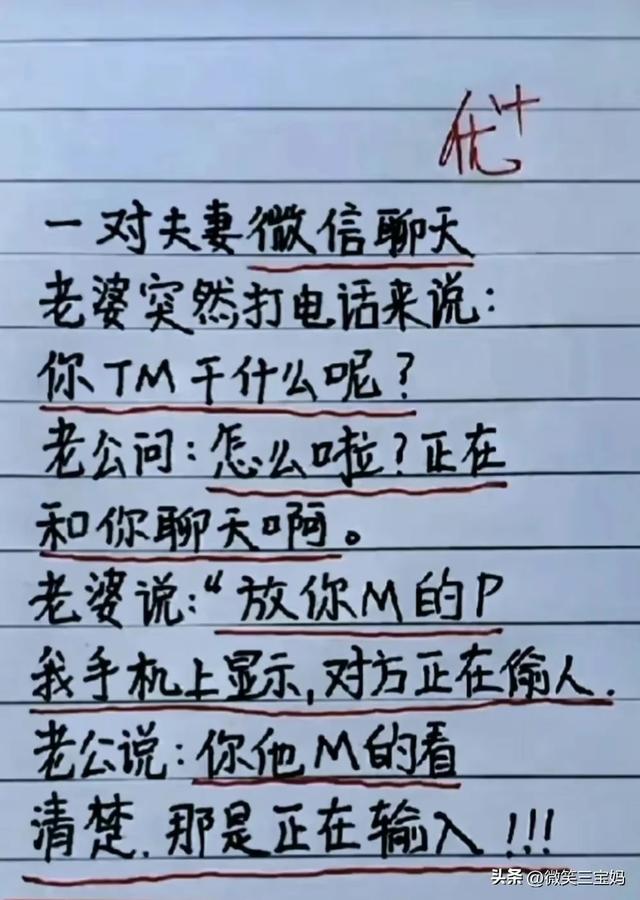 优+
一对夫妻微信聊天
老婆突然打电话来说:
你TM干什么呢?
老公问:怎么啦?正在
和你聊天啊。
老婆说:“放你M的P
我手机上显示,对方正在偷人.
老公说:你他M的看
清楚.那是正在输入!!!
头条 @微笑三宝妈